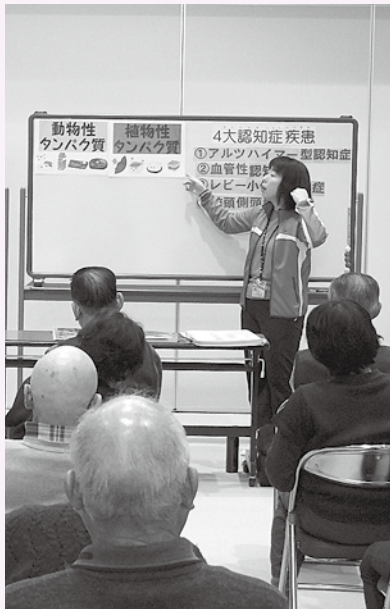 動物性
タンパク質
植物性
タンパク質
4大認知症疾患
①アルツハイマー型認知症
②血管性認知
レビー小 症
頭側頭